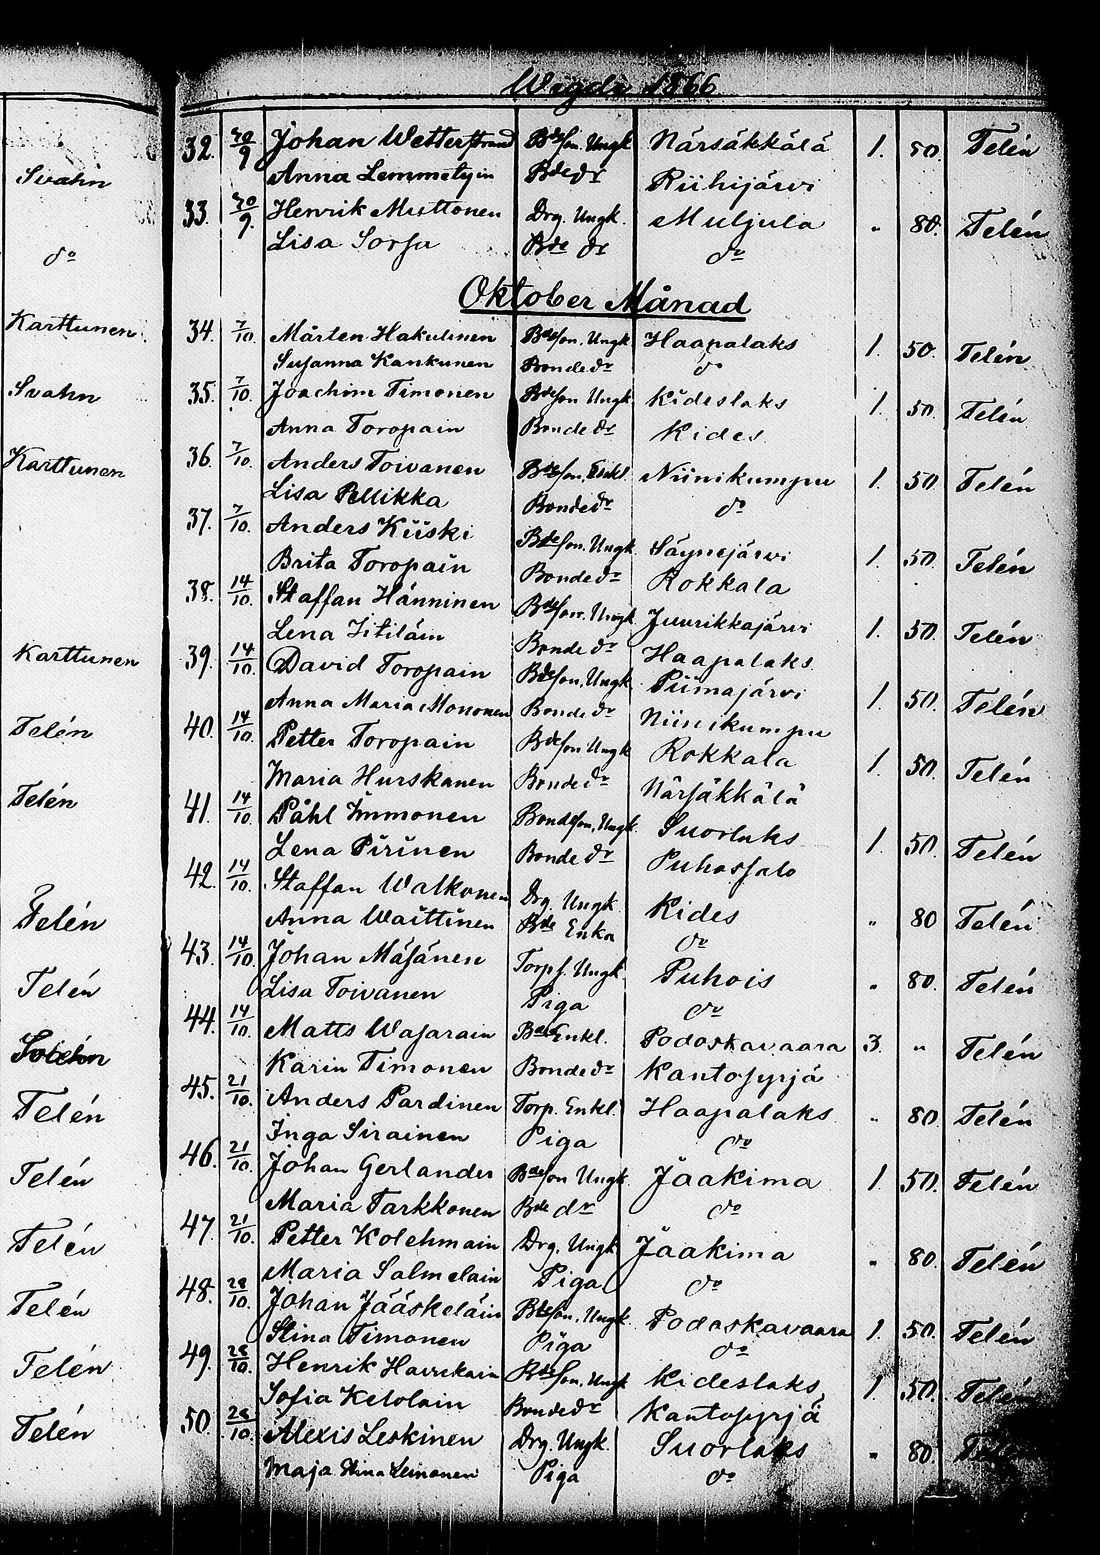 Wigde 1866
Svahn
do
Karttunen.
Svahn
Karttunen
Karttunen
Telén
Telén
Telén
Telén
Telén
Telén
Telén
Telén
Telén
Telén
32. 30/9 Johan Wetterstrand Bdeson. Ungk Närsäkkälä 1. 50. Telén
Anna Lemmetyin Bde dr Riihijärvi
33. 30/9. Henrik Muttonen Drg. Ungk. Muljula " 80. Telén
Lisa Sorsa Bde dr do
Oktober Månad
34. 7/10. Mårten Hakulinen Bdeson. Ungk Haapalaks 1. 50. Telén
Susanna Kankunen Bonde dr do
35. 7/10. Joachim Timonen Bdeson Ungk Kideslaks 1. 50. Telén
Anna Toropain Bonde dr Kides
36. 7/10. Anders Toivanen Bdeson, Enkl. Niinikumpu 1. 50. Telén
Lisa Pellikka Bonde dr do
37. 7/10. Anders Kiiski Bdeson. Ungk Säynejärvi 1. 50. Telén
Brita Toropain Bonde dr Rokkala
38. 14/10. Staffan Hänninen Bdeson. Ungk Juurikkajärvi 1. 50. Telén
Lena Bonde dr Haapalaks
39. 14/10. David Toropain Bdeson, Ungk Piimajärvi 1. 50. Telén
Anna Maria Mononen Bonde dr Niinikumpu
40. 14/10. Petter Toropain Bdeson Ungk Rokkala 1. 50. Telén
Maria Hurskanen Bonde dr Närsäkkälä
41. 14/10. Påhl Immonen Bondeson, Ungk. Suorlaks 1. 50. Telén
Lena Pirinen Bonde dr Puhossalo
42. 14/10. Staffan Walkonen Drg. Ungk. Kides " 80 Telén
Anna Waittinen Bde Enka do
43. 14/10. Johan Mäjänen Torpf. Ungk Puhois " 80. Telén
Lisa Toivanen Piga do
44. 14/10. Matts Wajarain Bde Enkl. Podoskavaara 3. " Telén
Karin Timonen Bonde dr Kantosyrjä
45. 21/10. Anders Pardinen Torp. Enkl. Haapalaks " 80. Telén
Inga Sirainen Piga do
46. 21/10. Johan Gerlander Bdeson Ungk. Jaakima 1. 50. Telén
Maria Tarkkonen Bde dr do
47. 21/10. Petter Kolehmain Drg. Ungk Jaakima " 80. Telén
Maria Salmelain Piga do
48. 28/10. Johan Jääskeläin Bdeson. Ungk Podoskavaara 1. 50. Telén
Stina Timonen Piga do
49. 28/10. Henrik Havukain Bdeson. Ungk Kideslaks 1. 50. Telén
Sofia Ketolain Bonde dr Kantosyrjä
50. 28/10. Alexis Leskinen Drg. Ungk. Suorlaks " 80. Telén
Maja Stina Leinonen Piga do